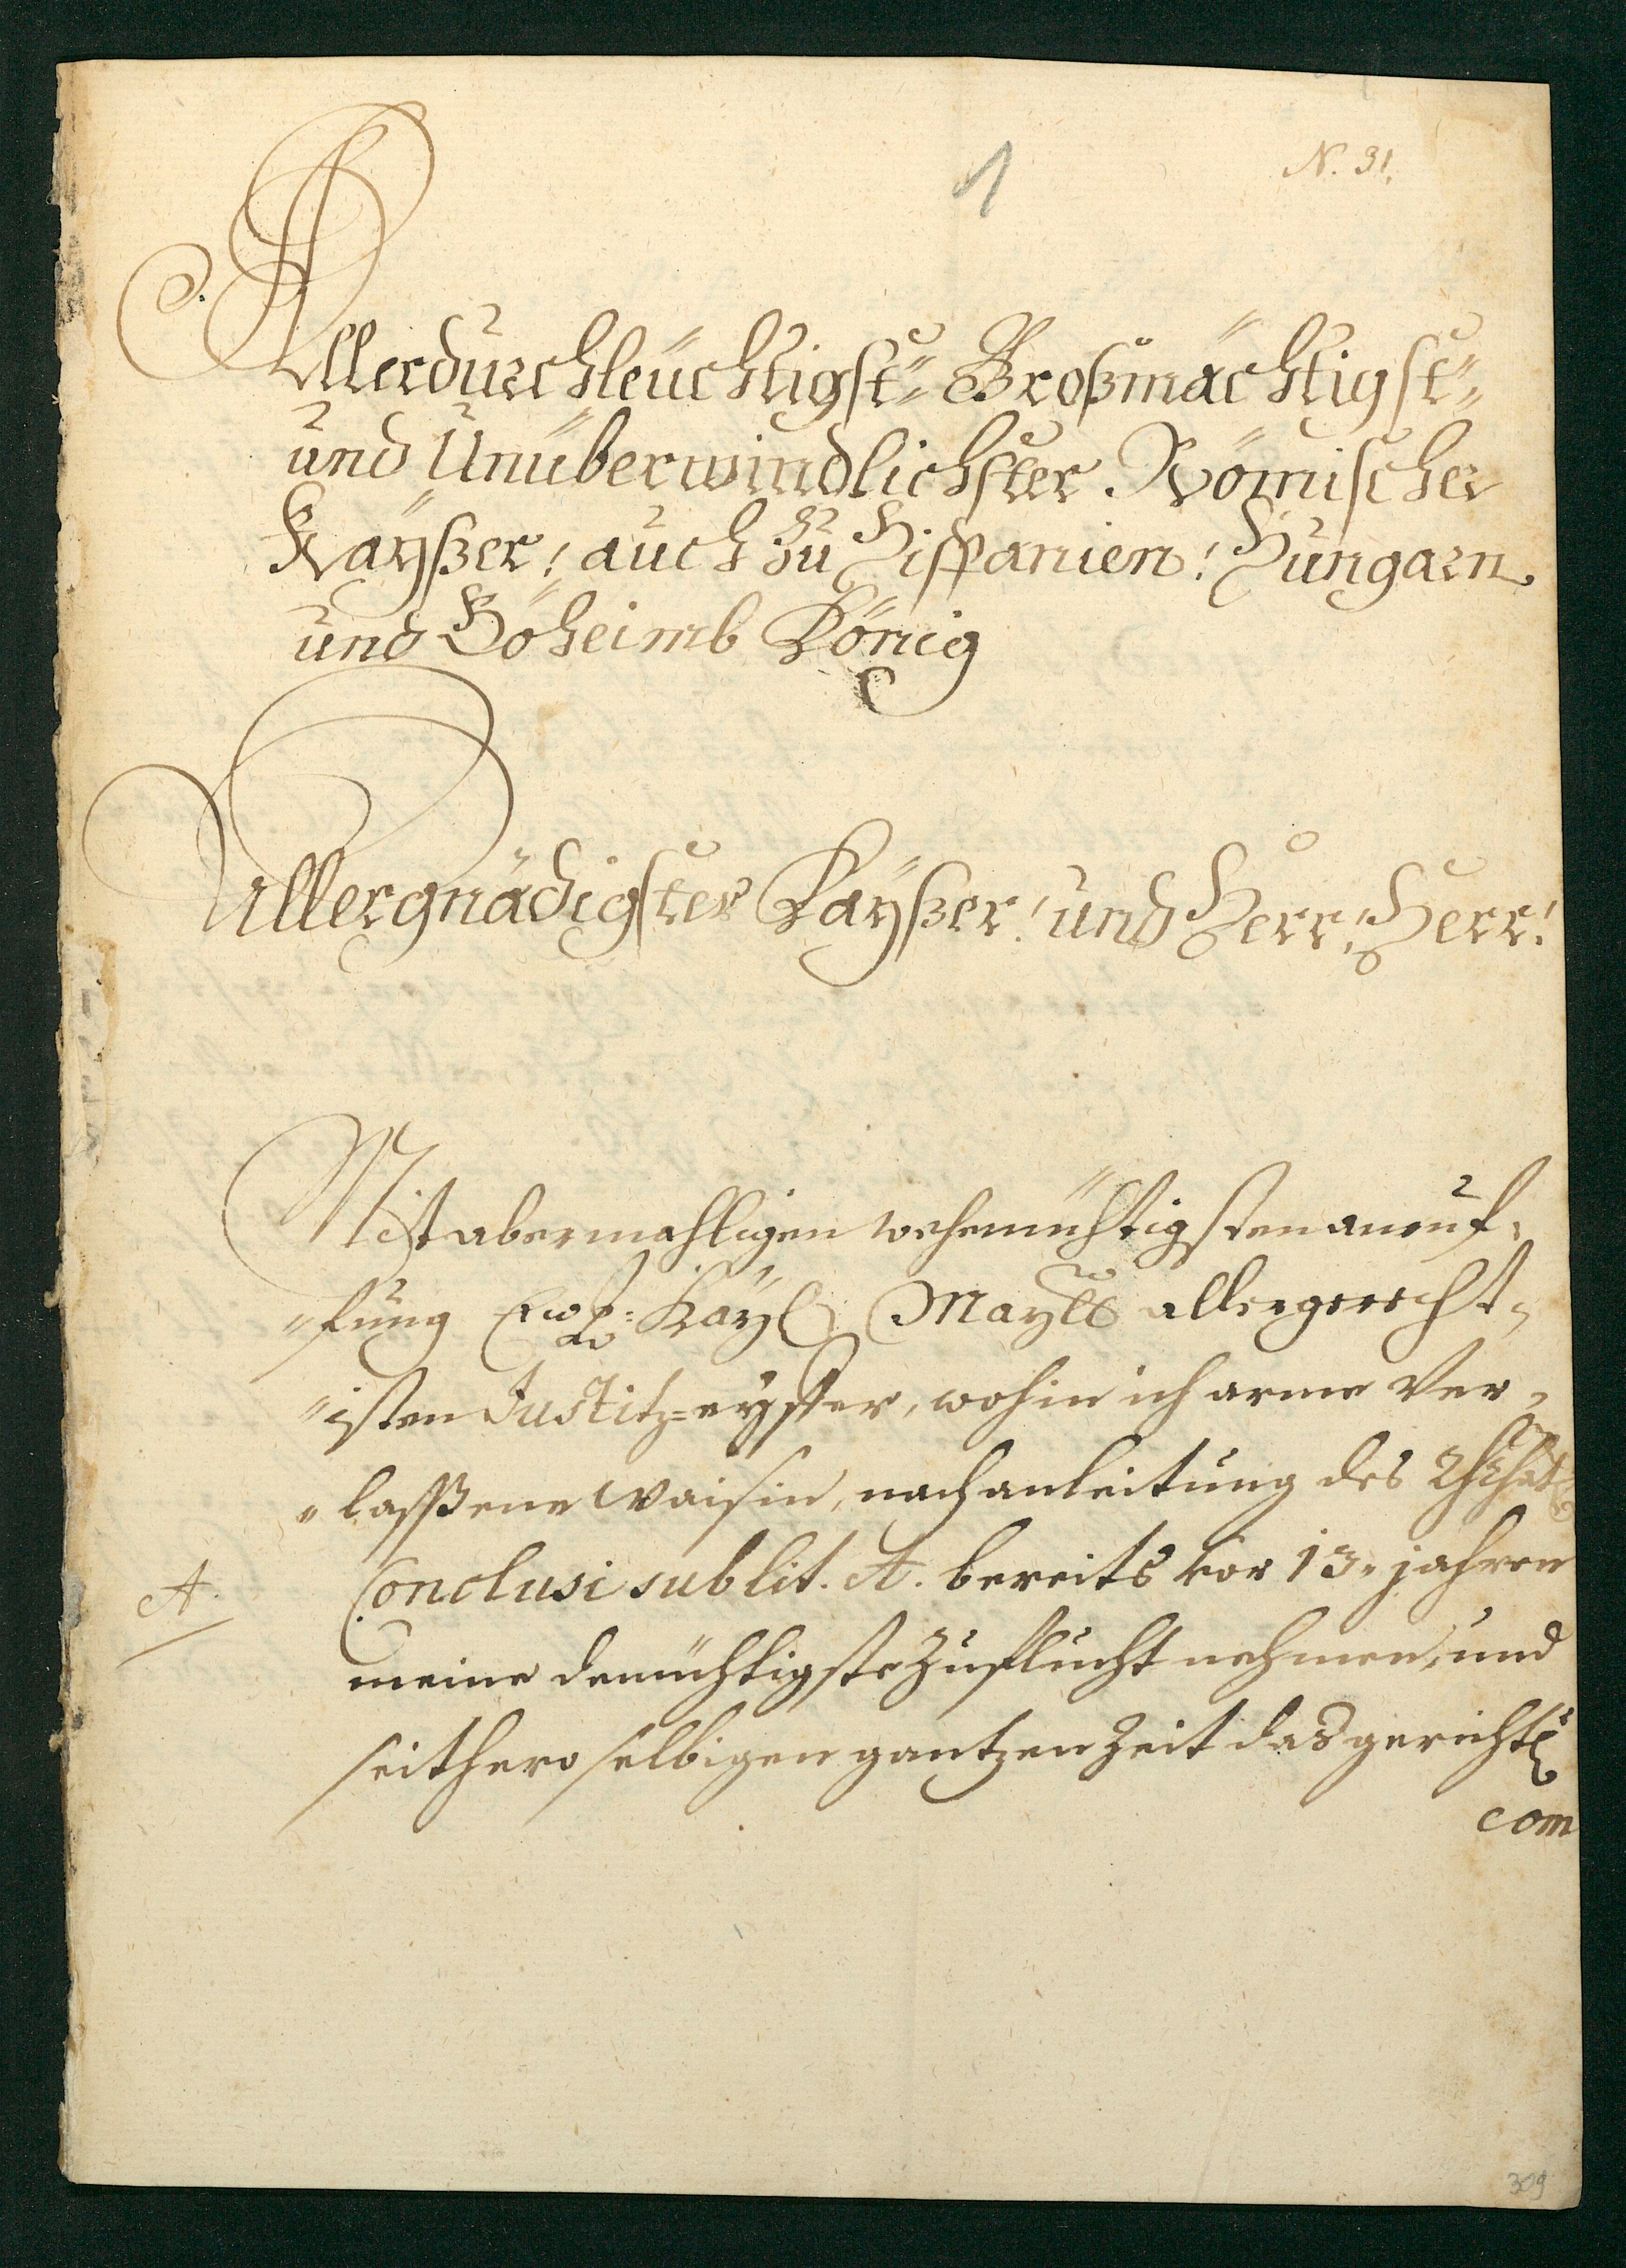 1
N. 31.
Allerdurchleüchtigst= Großmächtigst=
und Unüberwindlichster Römischer
Kaÿßer! auch zu Hispanien! Hungarn
und Böheimb König
Allergnädigster Kaÿßer! und Herr, Herr!
Mit abermahligen wehemühtigsten anruf=
=fung Ewr: Kaÿl: Maytt allergerecht=
=isten Justitz=eyffer, wohin ich arme Ver=
=lasßene Waisin, nach anleitung des
A. Conclusi sub lit. A. bereits vor 13. jahren
meine demühtigste Zuflucht nehmen, und
seithero selbigen gantzen Zeit das gerichtl:
com
309